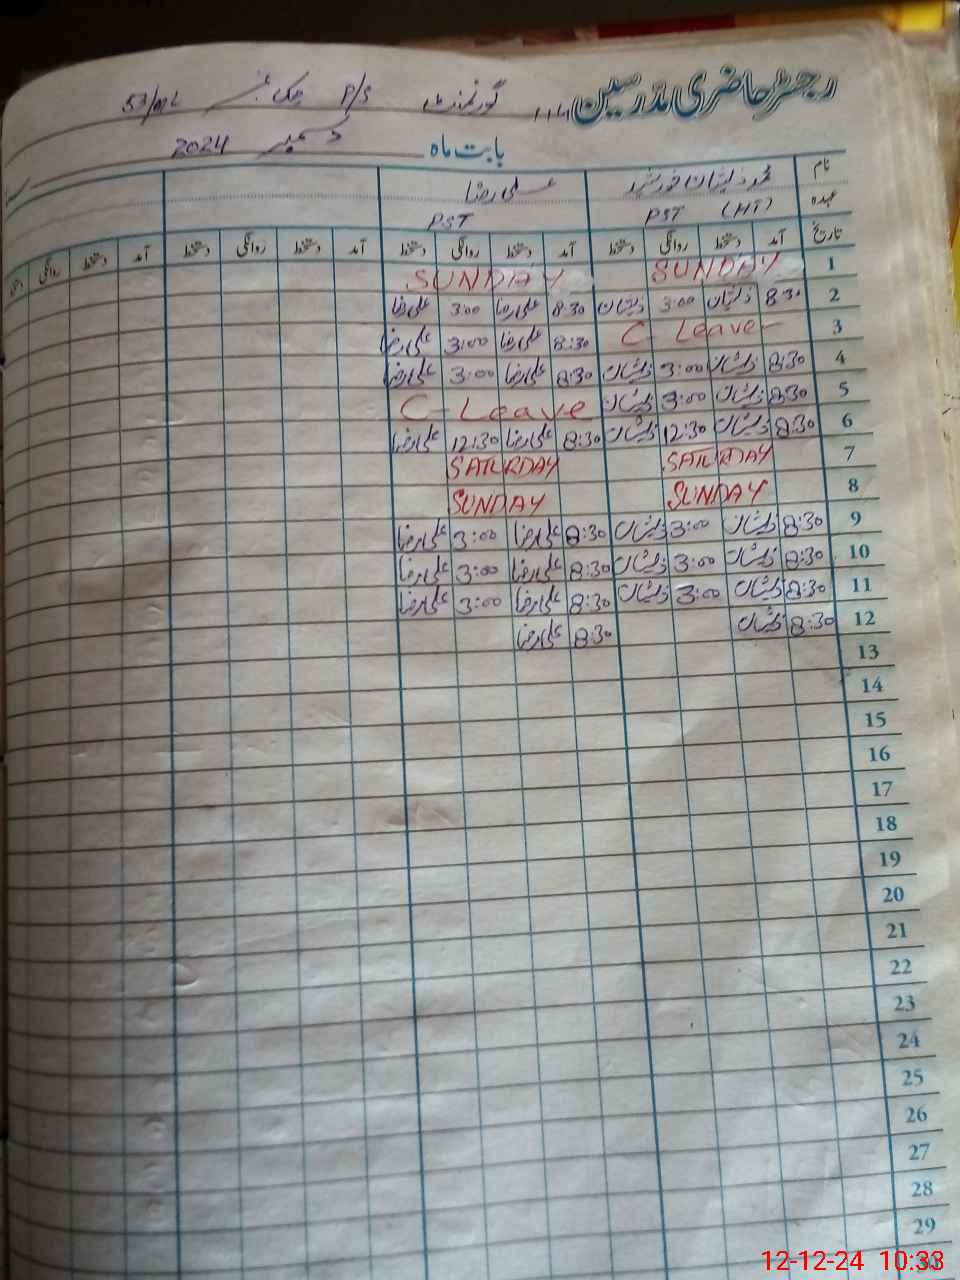 رجسٹر حاضری مدرسین گورنمنٹ P/S چک نمبر 53/ML
بابت ماہ دسمبر 2024
نام محمد ذیشان خورشید علی رضا
عہدہ PST (HT) PST
تاریخ آمد دستخط روانگی دستخط آمد دستخط روانگی دستخط آمد دستخط روانگی دستخط آمد دستخط روانگی
1 SUNDAY SUNDAY
2 8:30 ذیشان 3:00 ذیشان 8:30 علی رضا 3:00 علی رضا
3 C-Leave 8:30 علی رضا 3:00 علی رضا
4 8:30 ذیشان 3:00 ذیشان 8:30 علی رضا 3:00 علی رضا
5 8:30 ذیشان 3:00 ذیشان C-Leave
6 8:30 ذیشان 12:30 ذیشان 8:30 علی رضا 12:30 علی رضا
7 SATURDAY SATURDAY
8 SUNDAY SUNDAY
9 8:30 ذیشان 3:00 ذیشان 8:30 علی رضا 3:00 علی رضا
10 8:30 ذیشان 3:00 ذیشان 8:30 علی رضا 3:00 علی رضا
11 8:30 ذیشان 3:00 ذیشان 8:30 علی رضا 3:00 علی رضا
12 8:30 ذیشان 8:30 علی رضا
13
14
15
16
17
18
19
20
21
22
23
24
25
26
27
28
29
30
12-12-24 10:33